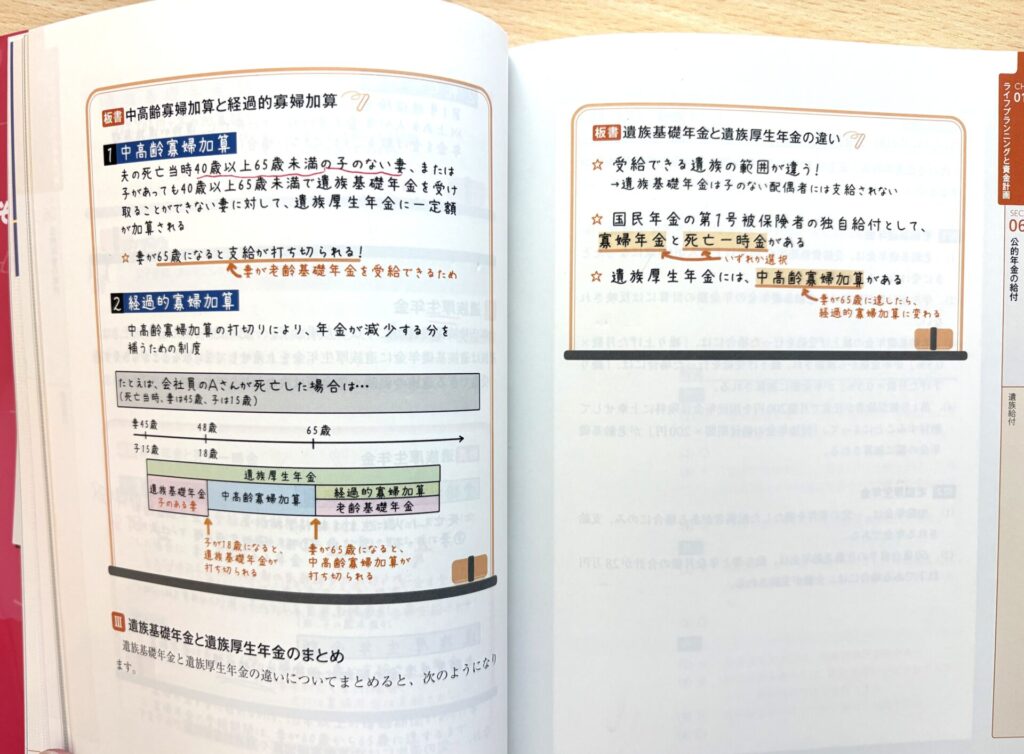 板書 中高齢寡婦加算と経過的寡婦加算
1 中高齢寡婦加算
夫の死亡当時40歳以上65歳未満の子のない妻、または
子があっても40歳以上65歳未満で遺族基礎年金を受け
取ることができない妻に対して、遺族厚生年金に一定額
が加算される
☆ 妻が65歳になると支給が打ち切られる!
妻が老齢基礎年金を受給できるため
2 経過的寡婦加算
中高齢寡婦加算の打切りにより、年金が減少する分を
補うための制度
たとえば、会社員のAさんが死亡した場合は…
(死亡当時、妻は45歳、子は15歳)
妻45歳 48歳 65歳
子15歳 18歳
遺族厚生年金
遺族基礎年金
子のある妻
中高齢寡婦加算
経過的寡婦加算
老齢基礎年金
子が18歳になると、
遺族基礎年金が
打ち切られる
妻が65歳になると、
中高齢寡婦加算が
打ち切られる
Ⅲ 遺族基礎年金と遺族厚生年金のまとめ
遺族基礎年金と遺族厚生年金の違いについてまとめると、次のようになり
ます。
板書 遺族基礎年金と遺族厚生年金の違い
☆ 受給できる遺族の範囲が違う!
→遺族基礎年金は子のない配偶者には支給されない
☆ 国民年金の第1号被保険者の独自給付として、
寡婦年金と死亡一時金がある
いずれか選択
☆ 遺族厚生年金には、中高齢寡婦加算がある
妻が65歳に達したら、
経過的寡婦加算に変わる
CH
01
ライフプランニングと資金計画
SEC
06
公的年金の給付
遺族給付